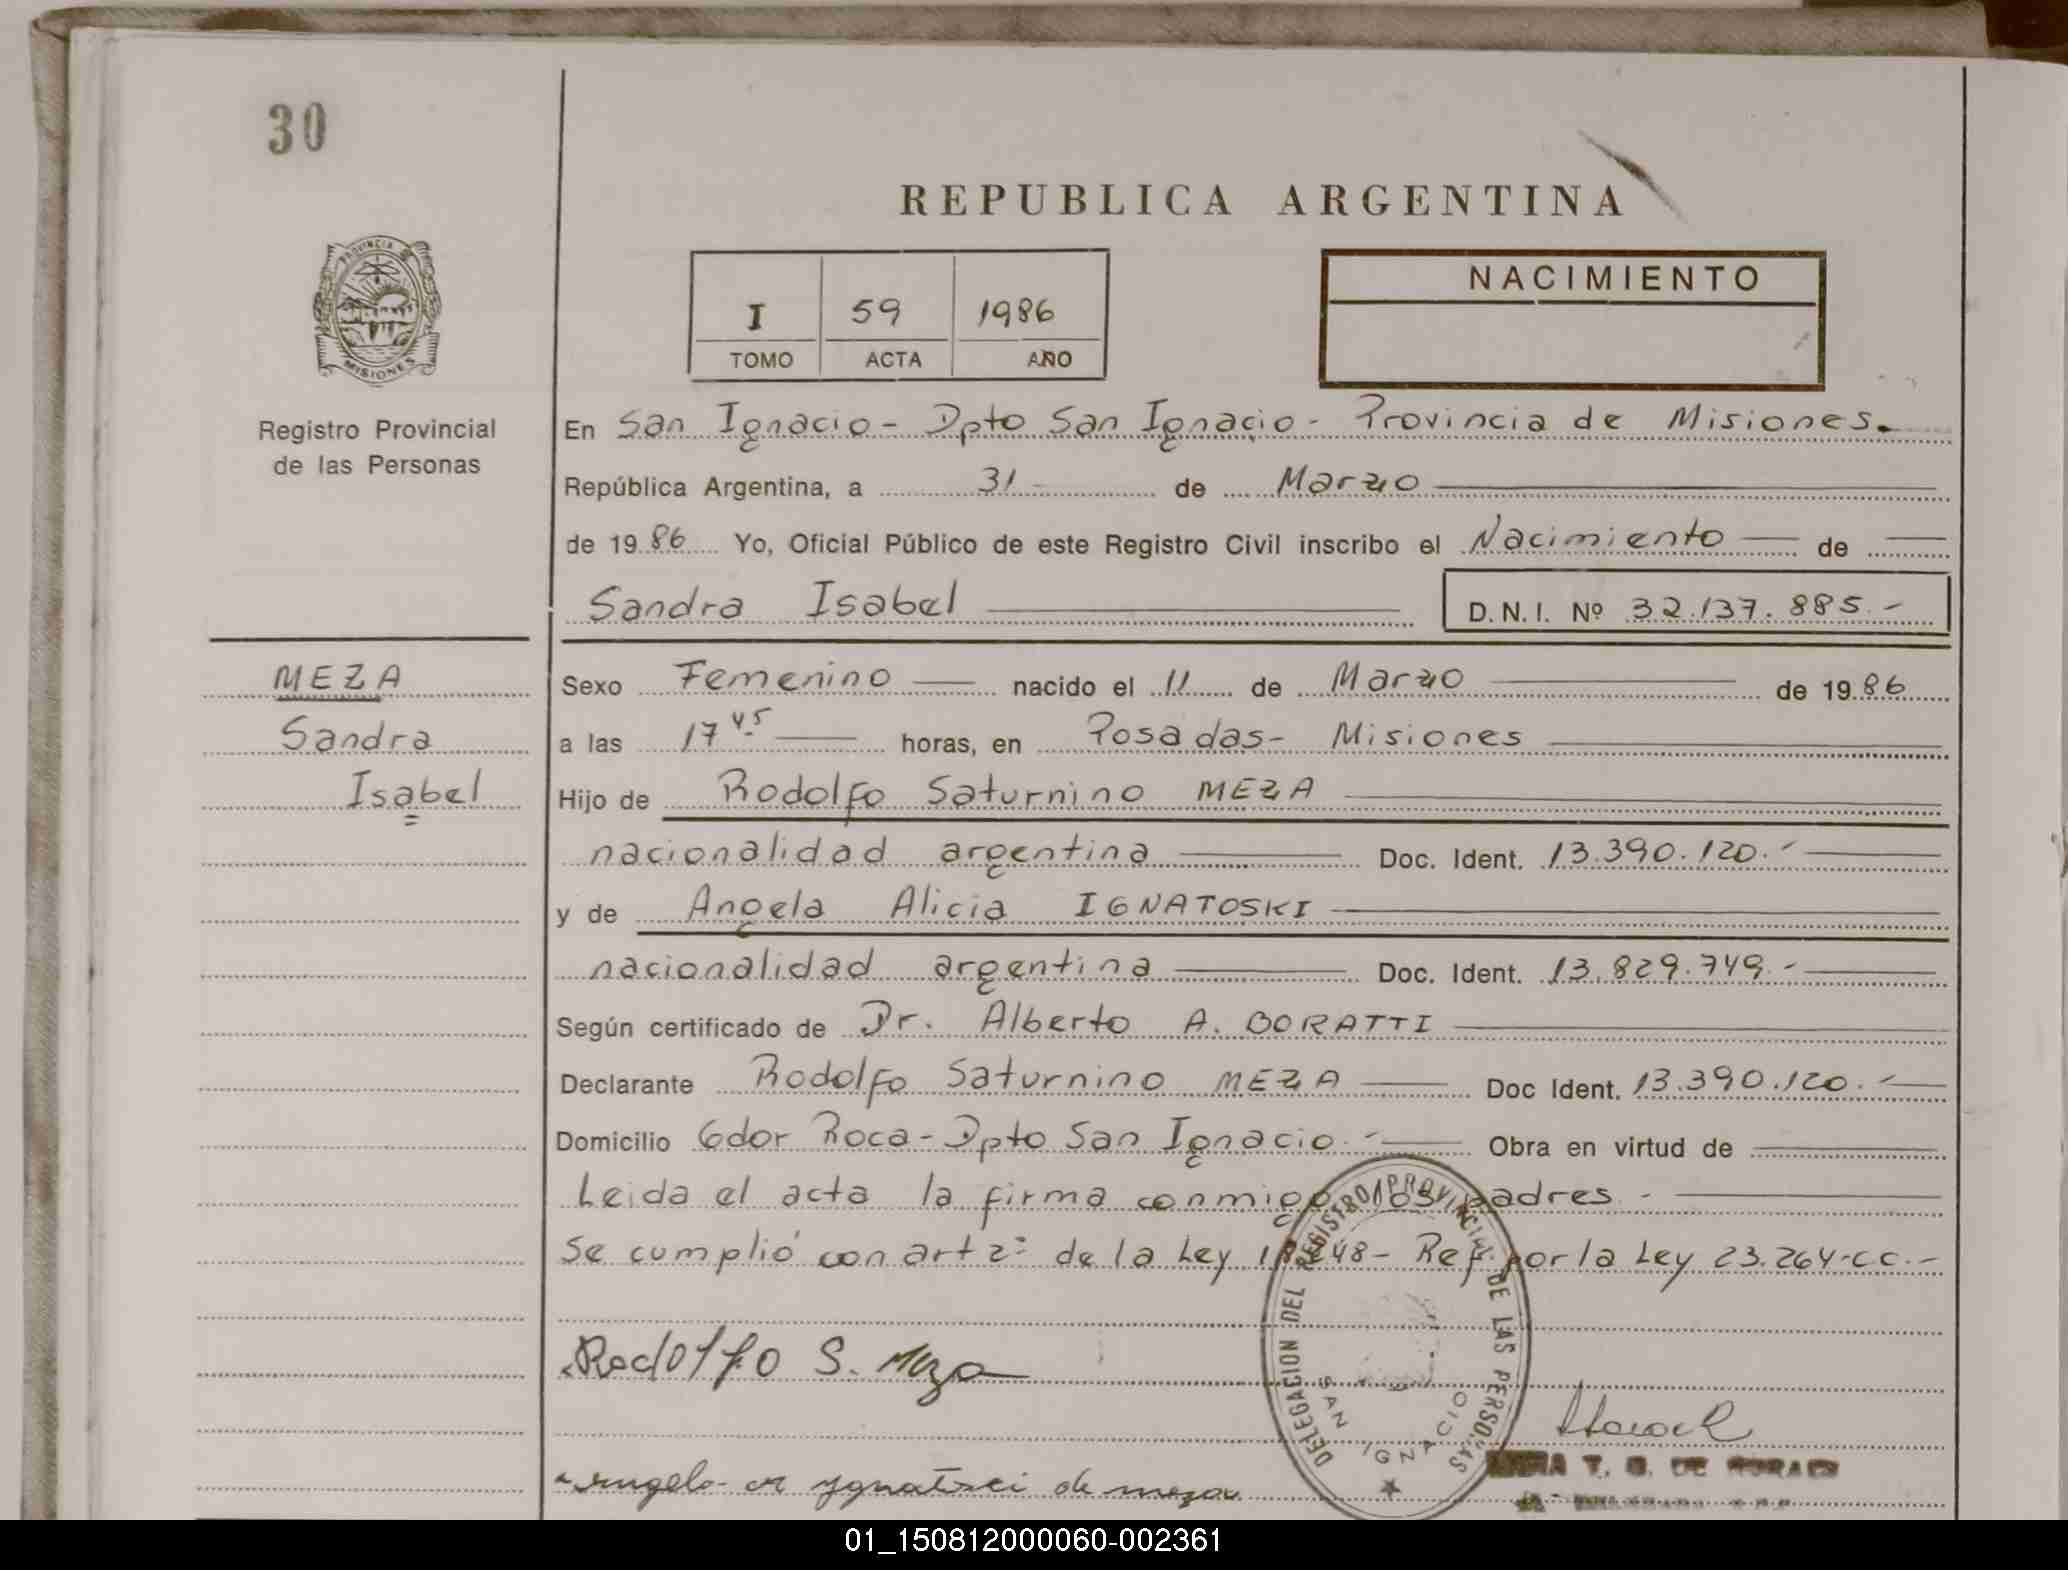 30
REPUBLICA ARGENTINA
PROVINCIA DE
MISIONES
Registro Provincial
de las Personas
I 59 1986
TOMO ACTA AÑO
NACIMIENTO
En San Ignacio - Dpto San Ignacio - Provincia de Misiones.
República Argentina, a 31 de Marzo
de 1986 Yo, Oficial Público de este Registro Civil inscribo el Nacimiento de
Sandra Isabel D.N.I. Nº 32.137.885.-
MEZA
Sandra
Isabel
Sexo Femenino nacido el 11 de Marzo de 1986
a las 17 45 horas, en Posadas- Misiones
Hijo de Rodolfo Saturnino MEZA
nacionalidad argentina Doc. Ident. 13.390.120.-
y de Angela Alicia IGNATOSKI
nacionalidad argentina Doc. Ident. 13.829.749.-
Según certificado de Dr. Alberto A. BORATTI
Declarante Rodolfo Saturnino MEZA Doc Ident. 13.390.120.-
Domicilio Gdor Roca - Dpto San Ignacio.- Obra en virtud de
Leida el acta la firma conmigo los padres.-
Se cumplió con art 2º de la Ley 18248- Ref por la Ley 23.264-C.C.-
Rodolfo S. Meza
DELEGACION DEL REGISTRO PROVINCIAL DE LAS PERSONAS
SAN IGNACIO
T. G. DE MORAES
01_150812000060-002361